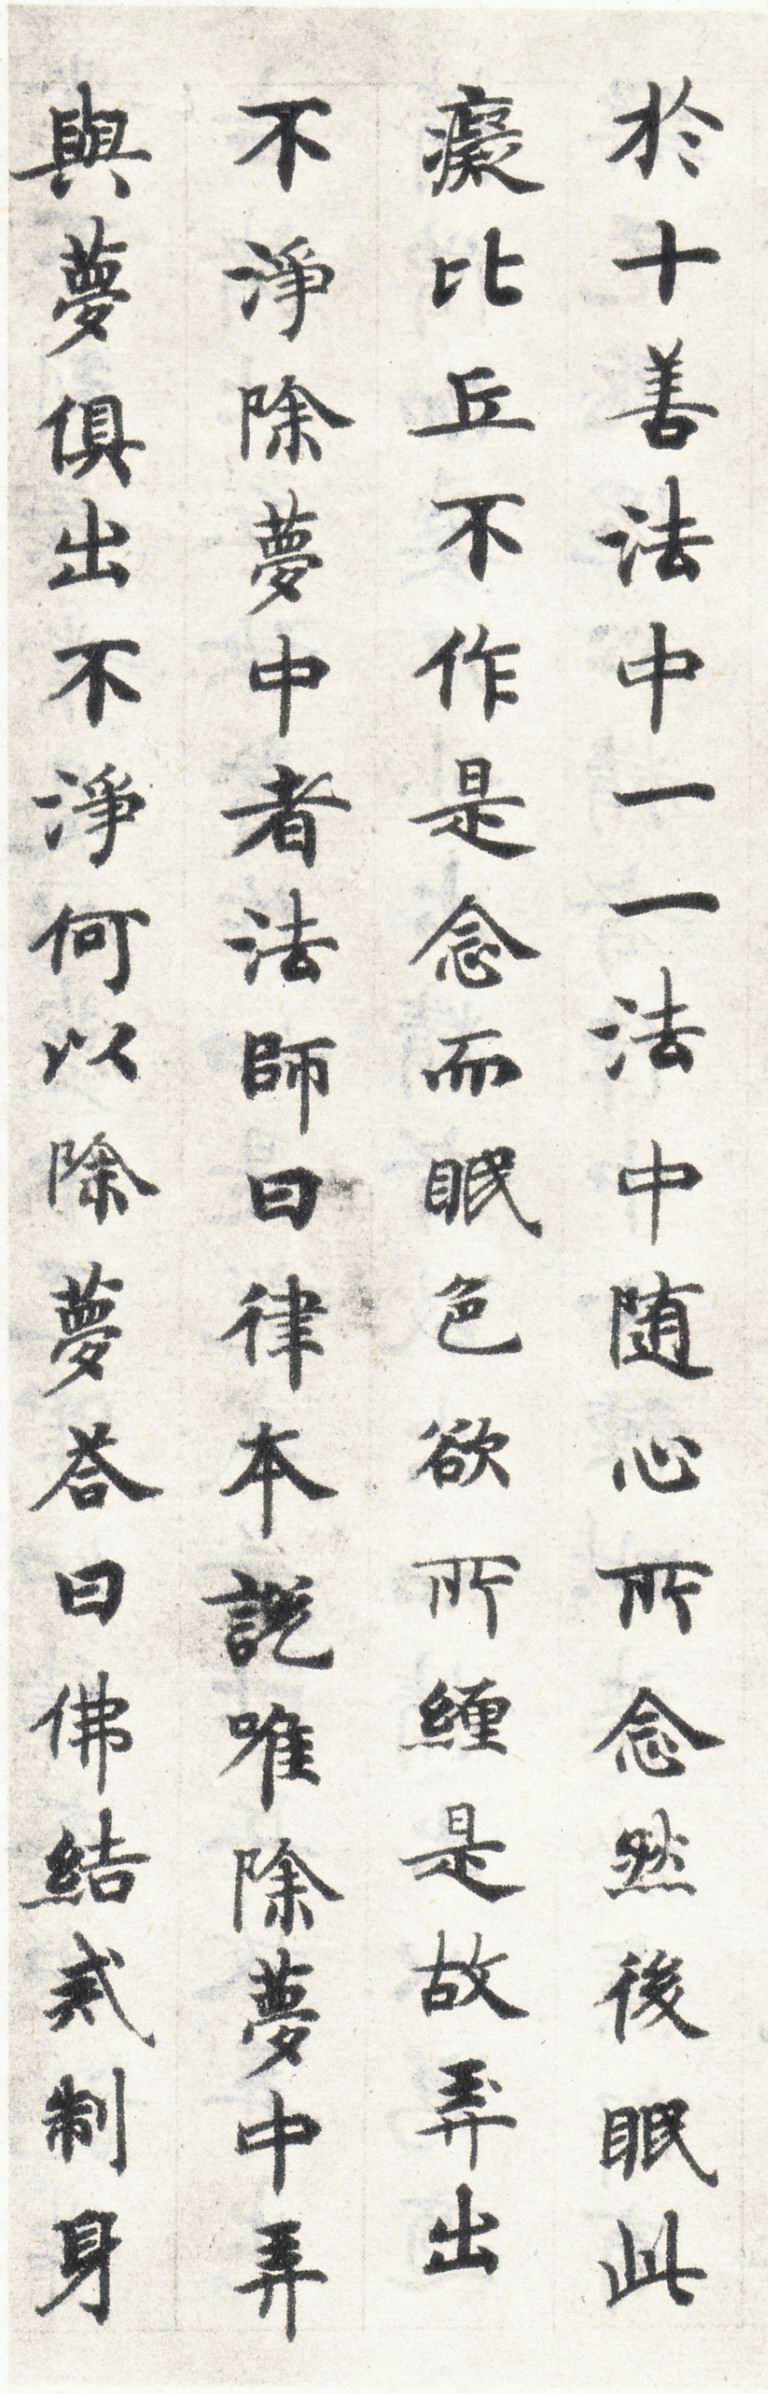 於十善法中一一法中随心所念然後眠此
癡比丘不作是念而眠色欲所纏是故弄出
不淨除夢中者法師曰律本説唯除夢中弄
與夢俱出不淨何以除夢荅曰佛結戒制身